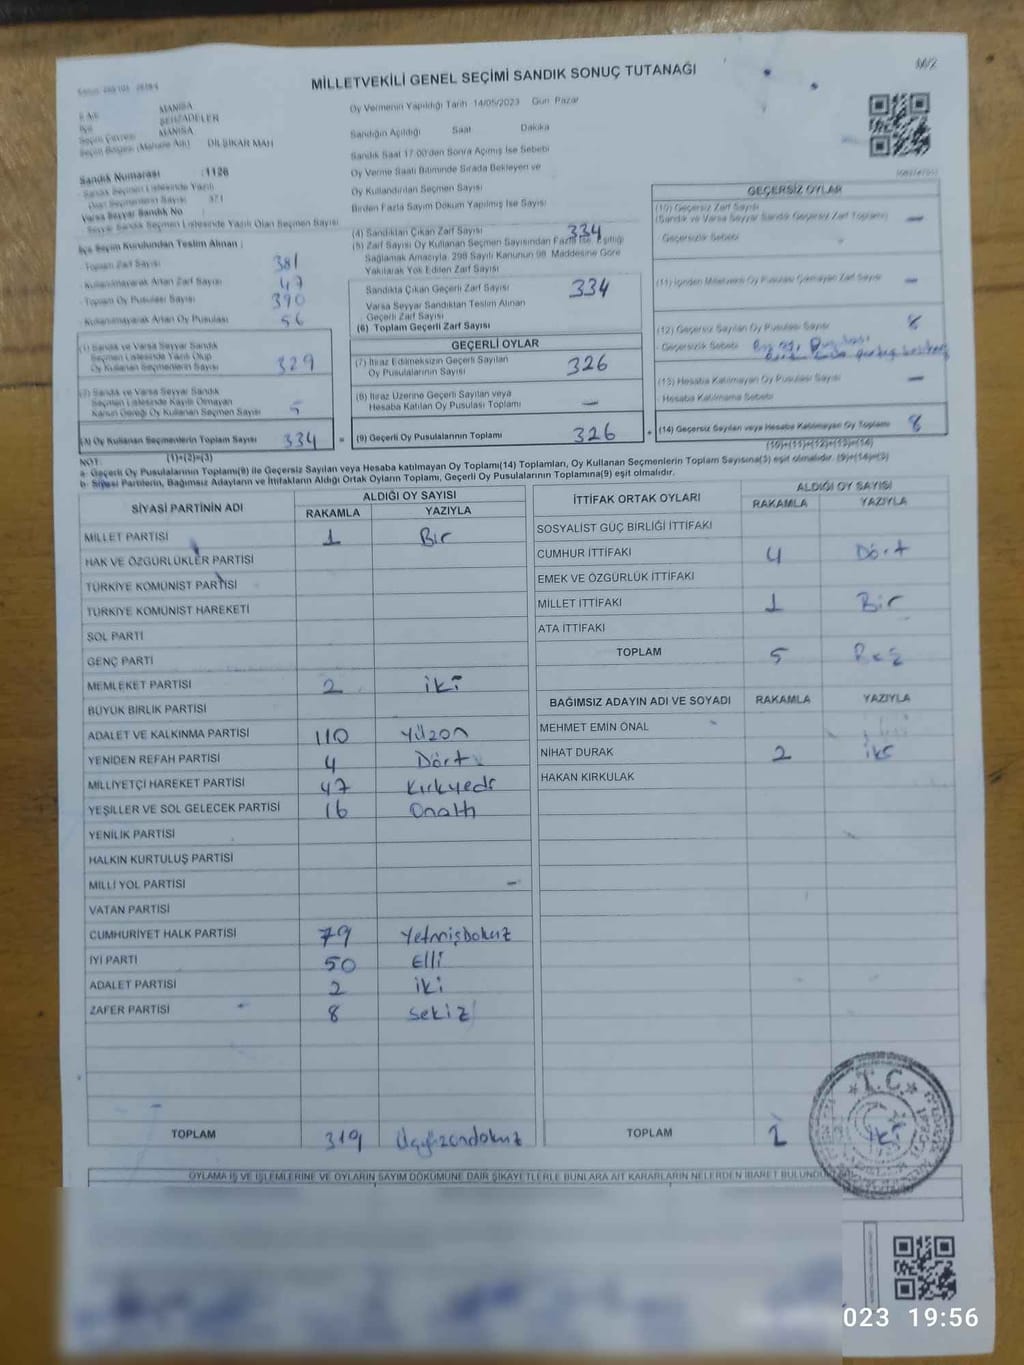 MİLLETVEKİLİ GENEL SEÇİMİ SANDIK SONUÇ TUTANAĞI
M/2
İli MANİSA
İlçe ŞEHZADELER
Seçim Çevresi MANİSA
Seçim Bölgesi (Mahalle Adı) DİLŞİKAR MAH
Sandık Numarası :1126
Sandık Seçmen Listesinde Yazılı
Olan Seçmen Sayısı 371
Varsa Seyyar Sandık No
Seyyar Sandık Seçmen Listesinde Yazılı Olan Seçmen Sayısı
İlçe Seçim Kurulundan Teslim Alınan :
- Toplam Zarf Sayısı 381
- Kullanılmayarak Artan Zarf Sayısı 47
- Toplam Oy Pusulası Sayısı 390
- Kullanılmayarak Artan Oy Pusulası 56
(1) Sandık ve Varsa Seyyar Sandık
Seçmen Listesinde Yazılı Olup
Oy Kullanan Seçmenlerin Sayısı 329
(2) Sandık ve Varsa Seyyar Sandık
Seçmen Listesinde Kayıtlı Olmayan
Kanun Gereği Oy Kullanan Seçmen Sayısı 5
(3) Oy Kullanan Seçmenlerin Toplam Sayısı 334
(1)+(2)=(3)
Oy Vermenin Yapıldığı Tarih 14/05/2023 Gün Pazar
Sandığın Açıldığı Saat Dakika
Sandık Saat 17:00'den Sonra Açılmış İse Sebebi
Oy Verme Saati Bitiminde Sırada Bekleyen ve
Oy Kullandırılan Seçmen Sayısı
Birden Fazla Sayım Döküm Yapılmış İse Sayısı
(4) Sandıktan Çıkan Zarf Sayısı 334
(5) Zarf Sayısı Oy Kullanan Seçmen Sayısından Fazla İse, Eşitliği
Sağlamak Amacıyla, 298 Sayılı Kanunun 98. Maddesine Göre
Yakılarak Yok Edilen Zarf Sayısı
Sandıkta Çıkan Geçerli Zarf Sayısı 334
Varsa Seyyar Sandıktan Teslim Alınan
Geçerli Zarf Sayısı
(6) Toplam Geçerli Zarf Sayısı
GEÇERLİ OYLAR
(7) İtiraz Edilmeksizin Geçerli Sayılan
Oy Pusulalarının Sayısı 326
(8) İtiraz Üzerine Geçerli Sayılan veya
Hesaba Katılan Oy Pusulası Toplamı —
= (9) Geçerli Oy Pusulalarının Toplamı 326
GEÇERSİZ OYLAR
(10) Geçersiz Zarf Sayısı
(Sandık ve Varsa Seyyar Sandık Geçersiz Zarf Toplamı) —
Geçersizlik Sebebi
(11) İçinden Milletvekili Oy Pusulası Çıkmayan Zarf Sayısı —
(12) Geçersiz Sayılan Oy Pusulası Sayısı 8
- Geçersizlik Sebebi
(13) Hesaba Katılmayan Oy Pusulası Sayısı —
- Hesaba Katılmama Sebebi
+ (14) Geçersiz Sayılan veya Hesaba Katılmayan Oy Toplamı 8
(10)+(11)+(12)+(13)=(14)
NOT:
a- Geçerli Oy Pusulalarının Toplamı(9) ile Geçersiz Sayılan veya Hesaba katılmayan Oy Toplamı(14) Toplamları, Oy Kullanan Seçmenlerin Toplam Sayısına(3) eşit olmalıdır. (9)+(14)=(3)
b- Siyasi Partilerin, Bağımsız Adayların ve İttifakların Aldığı Ortak Oyların Toplamı, Geçerli Oy Pusulalarının Toplamına(9) eşit olmalıdır.
SİYASİ PARTİNİN ADI ALDIĞI OY SAYISI
RAKAMLA YAZIYLA
MİLLET PARTİSİ 1 Bir
HAK VE ÖZGÜRLÜKLER PARTİSİ
TÜRKİYE KOMÜNİST PARTİSİ
TÜRKİYE KOMÜNİST HAREKETİ
SOL PARTİ
GENÇ PARTİ
MEMLEKET PARTİSİ 2 iki
BÜYÜK BİRLİK PARTİSİ
ADALET VE KALKINMA PARTİSİ 110 Yüzon
YENİDEN REFAH PARTİSİ 4 Dört
MİLLİYETÇİ HAREKET PARTİSİ 47 Kırkyedi
YEŞİLLER VE SOL GELECEK PARTİSİ 16 Onaltı
YENİLİK PARTİSİ
HALKIN KURTULUŞ PARTİSİ
MİLLİ YOL PARTİSİ –
VATAN PARTİSİ
CUMHURİYET HALK PARTİSİ 79 Yetmişdokuz
İYİ PARTİ 50 Elli
ADALET PARTİSİ 2 iki
ZAFER PARTİSİ 8 sekiz
TOPLAM 319 Üçyüzondokuz
İTTİFAK ORTAK OYLARI ALDIĞI OY SAYISI
RAKAMLA YAZIYLA
SOSYALİST GÜÇ BİRLİĞİ İTTİFAKI
CUMHUR İTTİFAKI 4 Dört
EMEK VE ÖZGÜRLÜK İTTİFAKI
MİLLET İTTİFAKI 1 Bir
ATA İTTİFAKI
TOPLAM 5 Beş
BAĞIMSIZ ADAYIN ADI VE SOYADI RAKAMLA YAZIYLA
MEHMET EMİN ÖNAL
NİHAT DURAK 2 iki
HAKAN KIRKULAK
TOPLAM 2 iki
T.C.
OYLAMA İŞ VE İŞLEMLERİNE VE OYLARIN SAYIM DÖKÜMÜNE DAİR ŞİKAYETLERLE BUNLARA AİT KARARLARIN NELERDEN İBARET BULUNDU
023 19:56